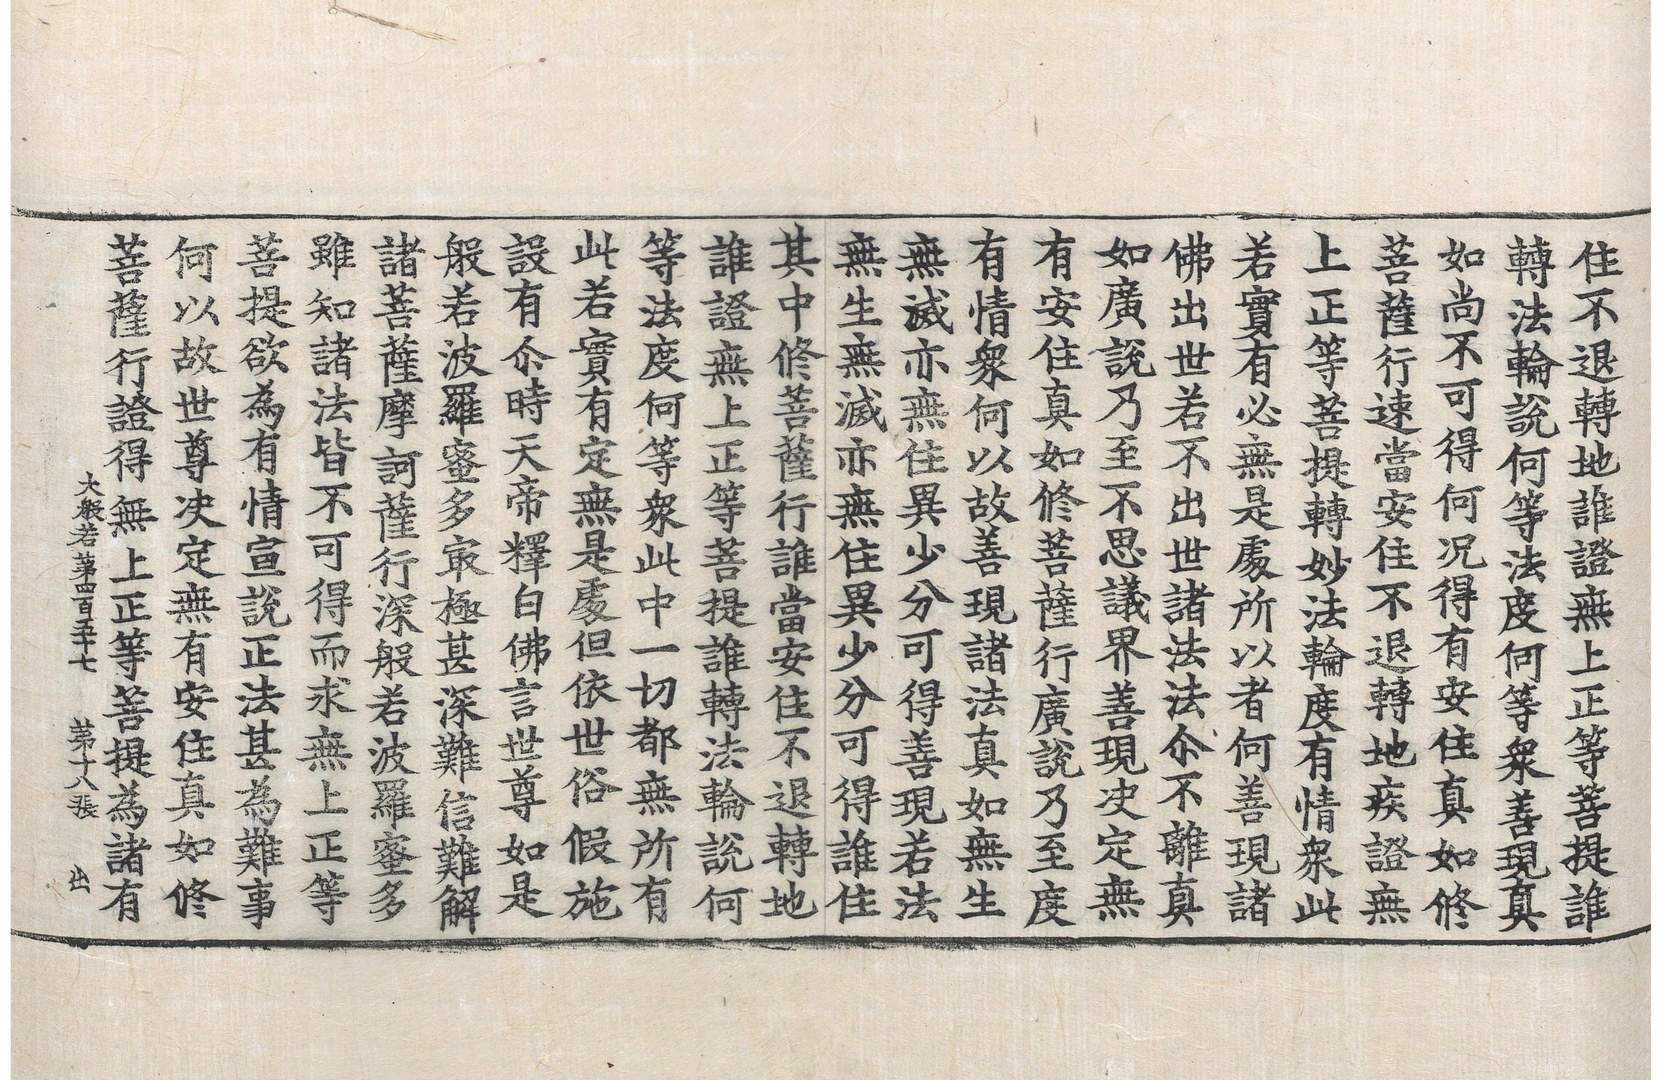 住不退轉地誰證無上正等菩提誰
轉法輪說何等法度何等衆善現真
如尚不可得何况得有安住真如修
菩薩行速當安住不退轉地疾證無
上正等菩提轉妙法輪度有情衆此
若實有必無是處所以者何善現諸
佛出世若不出世諸法法尒不離真
如廣說乃至不思議界善現决定無
有安住真如修菩薩行廣說乃至度
有情衆何以故善現諸法真如無生
無滅亦無住異少分可得善現若法
無生無滅亦無住異少分可得誰住
其中修菩薩行誰當安住不退轉地
誰證無上正等菩提誰轉法輪說何
等法度何等衆此中一切都無所有
此若實有定無是處但依世俗假施
設有尒時天帝釋白佛言世尊如是
般若波羅蜜多㝡極甚深難信難解
諸菩薩摩訶薩行深般若波羅蜜多
雖知諸法皆不可得而求無上正等
菩提欲為有情宣說正法甚為難事
何以故世尊决定無有安住真如修
菩薩行證得無上正等菩提為諸有
大般若第四百五十七 第十八張 出